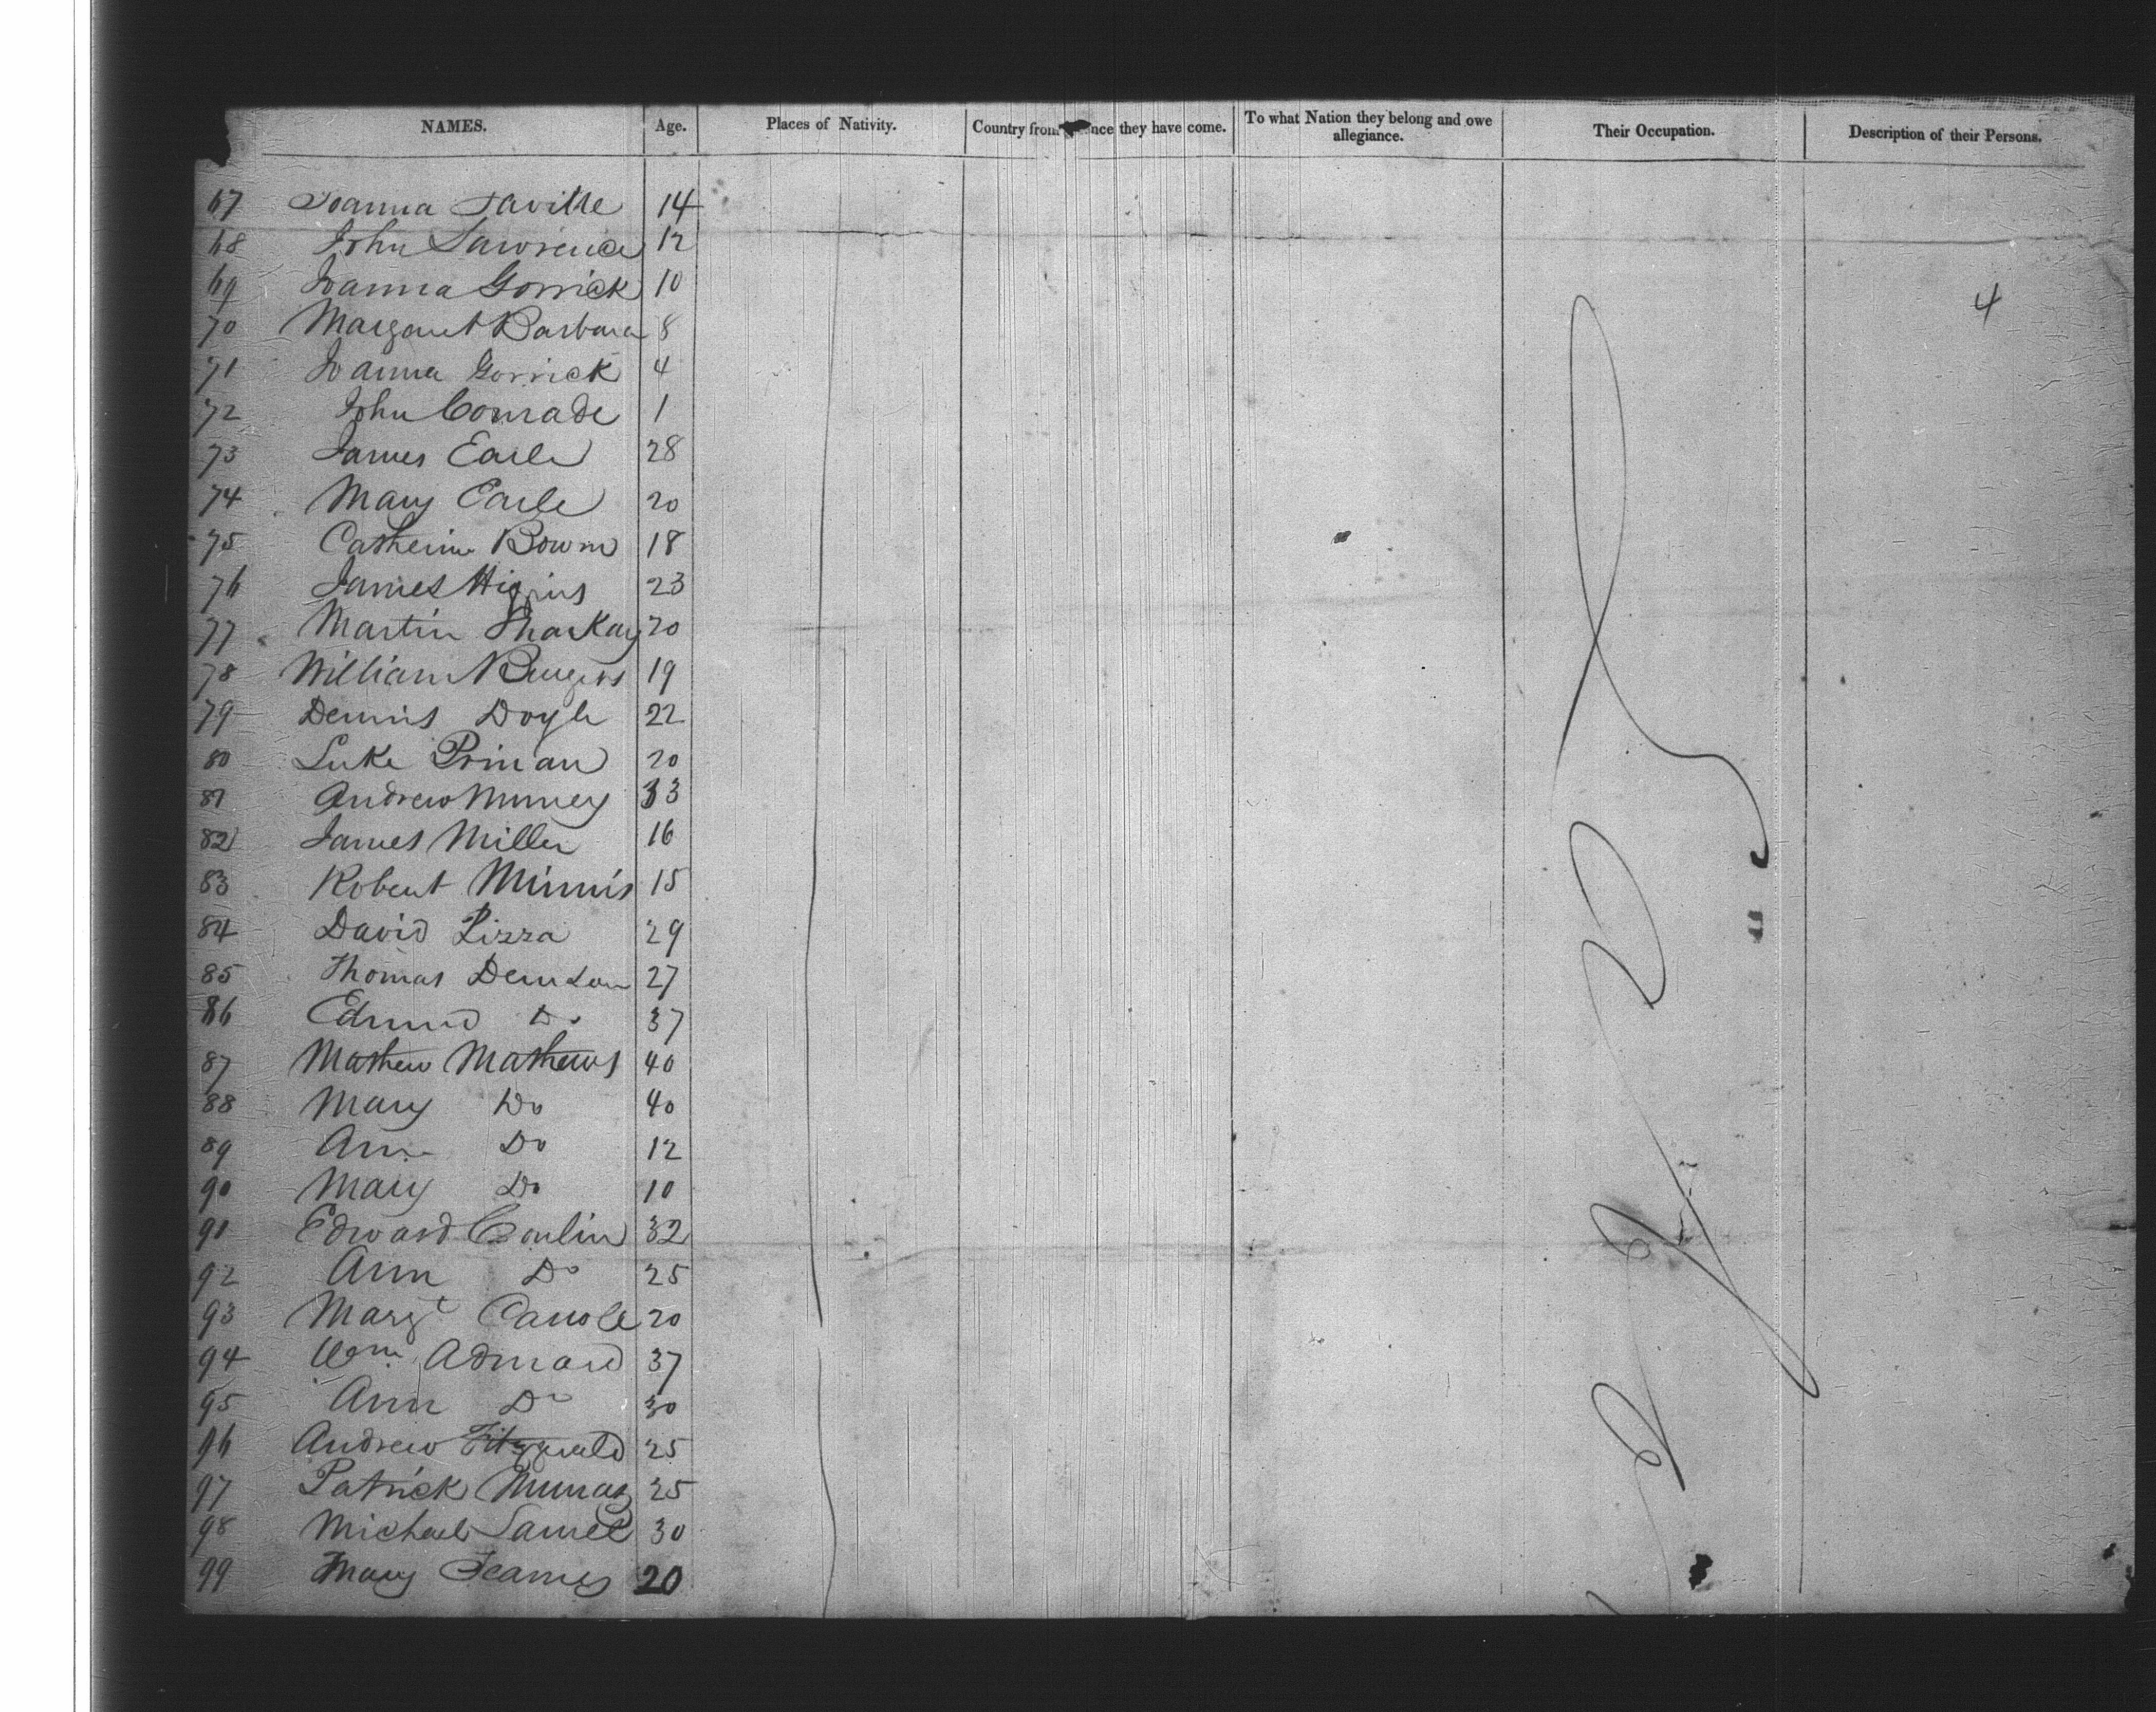 NAMES. Age. Places of Nativity. Country from nce they have come. To what Nation they belong and owe allegiance. Their Occupation. Description of their Persons.
67 Joanna Saville 14
68 John Lawrence 12
69 Joanna Gorrick 10
4
70 Margaret Barbara 8
71 Joanna Gorrick 4
72 John Comrade 1
73 James Earle 28
74 Mary Earle 20
75 Catherine Bowm 18
76 James Higgins 23
77 Martin Sharkay 20
78 William 19
79 Dennis Doyle 22
80 Luke Prinan 20
81 Andrew 33
82 James Miller 16
83 Robert Minnis 15
84 David Lizza 29
85 Thomas Denison 27
86 Edmund Do 37
87 Mathew Mathews 40
88 Mary Do 40
89 Ann Do 12
90 Mary Do 10
91 Edward Conlin 32
92 Ann Do 25
93 Margt Carrole 20
94 Wm 37
95 Ann Do 30
96 Andrew Fitzgerald 25
97 Patrick Murray 25
98 Michael 30
99 Mary 20